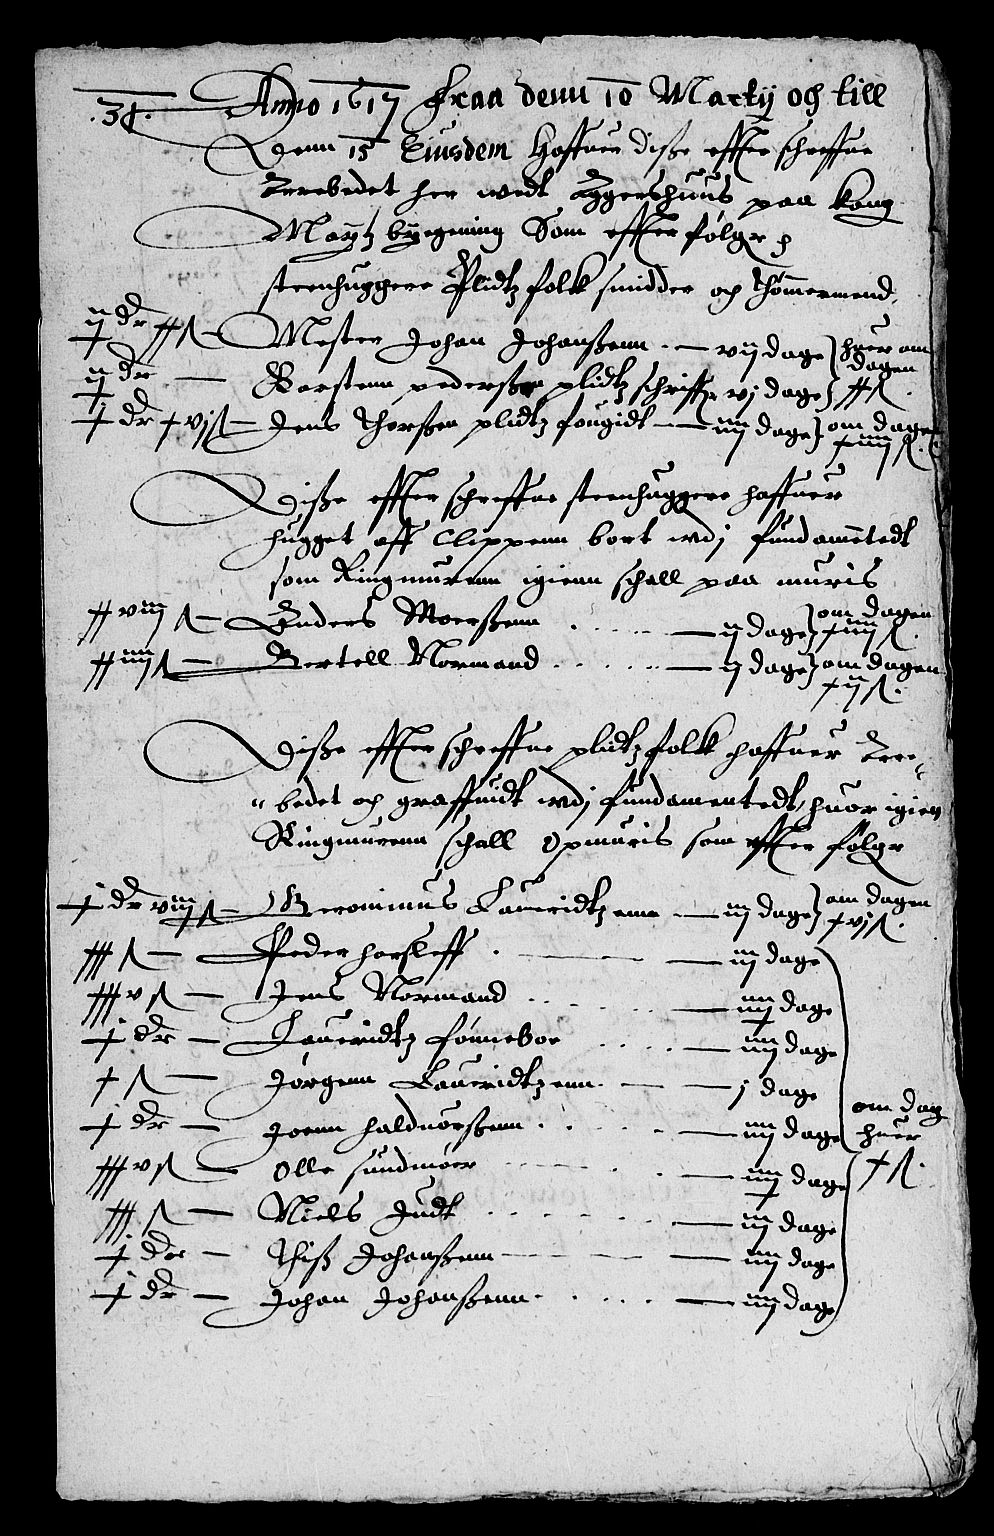 .31. Anno 1617 Fraa denn 10 Martij och till
Denn 15 Eiusdem Haffuer diße effter schreffne
Arrebedet her wedt Aggershuus paa Kong
Maytz bygening Som effter følger
steenhuggere Plidtz folk smidder och thømmermend
ij dr xx s – Mester Johan Johanßenn – vij dage } huer om dagen
ij dr – Torstenn pederßen plidtz schriffr vj dage } xx s
j dr x vj s – Jens Thorßen plidtz fougidt – iiij dage } om dagen xiiij s.
Diße effter schreffne steenhuggere haffuer
hugget aff Clippenn bort wdj fundamētedt
som Ringmurenn igienn schall paa muris
xx viij s – Anders Moerßenn – ij dage } om dagen xiiij s.
xx iiij s – Bertell Normand – ij dage } om dagen xij s.
Diße effter schreffne plidtz folk haffuer Arre-
bedet och graffuidt wdj fundamentedt, huor igien
Ringmurenn schall Opmuris som effter følger
j dr viij s – Heronimus Lauridtzenn – iij dage } om dagen xvj s.
xxx s – Peder horsleff – iij dage
xxx v s – Jens Normand – iiij dage
j dr – Lauridtz sønnebor – iiij dage
x s – Jørgenn Lauridtzenn – j dage
j dr – Joenn haldworßenn – iiij dage om dag huer x s.
xxx v s – Olle sundmøer – iiij dage
xxx s – Niels Judt – iij dage
j dr – Thiß Johanßenn – iiij dage
j dr – Johan Johanßenn – iiij dage